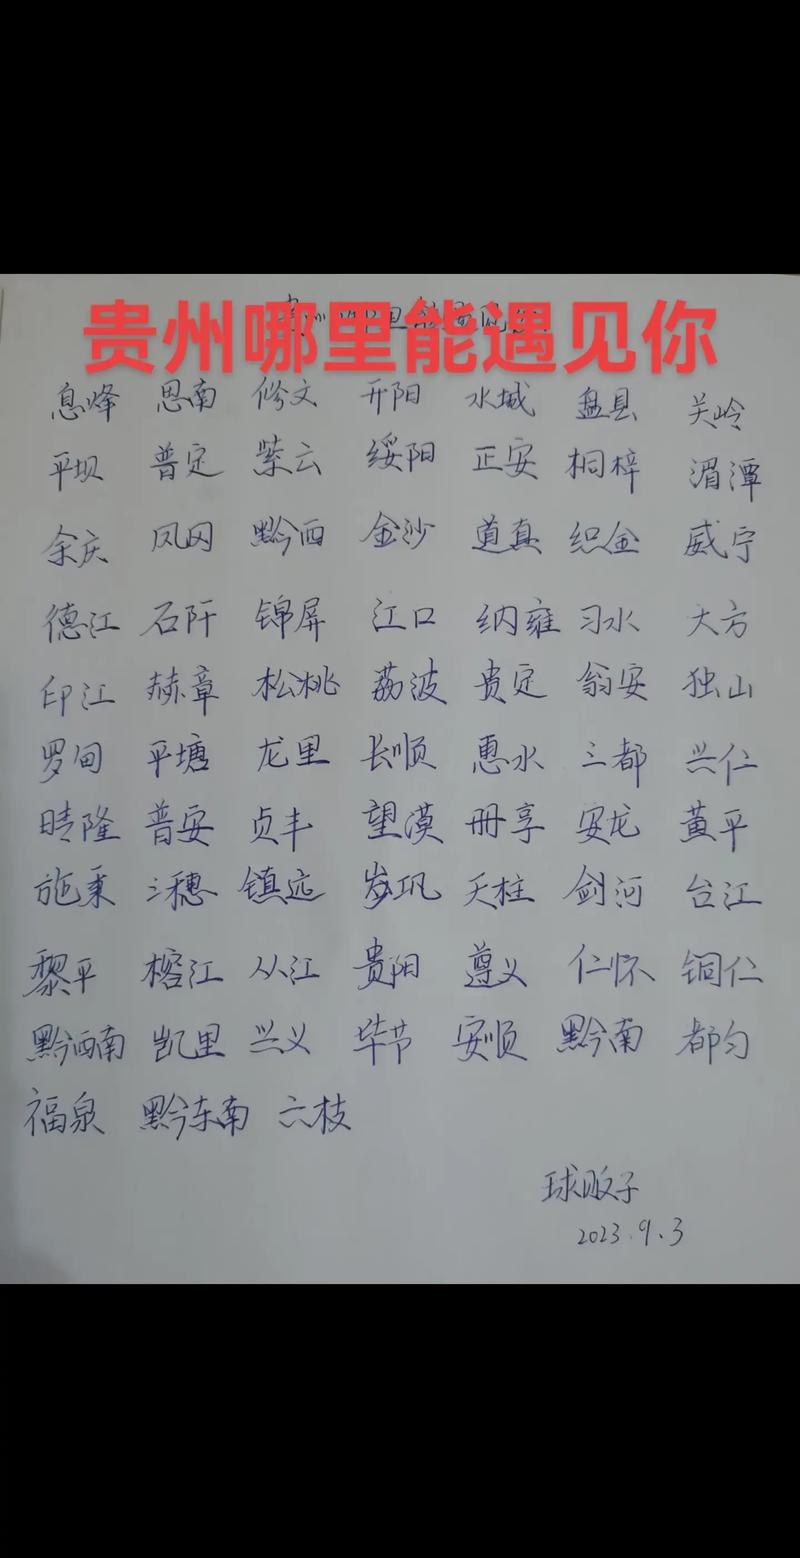 贵州哪里能遇见你
息烽 思南 修文 开阳 水城 盘县 关岭
平坝 普定 紫云 绥阳 正安 桐梓 湄潭
余庆 凤冈 黔西 金沙 道真 织金 威宁
德江 石阡 锦屏 江口 纳雍 习水 大方
印江 赫章 松桃 荔波 贵定 翁安 独山
罗甸 平塘 龙里 长顺 惠水 三都 兴仁
晴隆 普安 贞丰 望漠 册亨 安龙 黄平
施秉 三穗 镇远 岑巩 天柱 剑河 台江
黎平 榕江 从江 贵阳 遵义 仁怀 铜仁
黔西南 凯里 兴义 毕节 安顺 黔南 都匀
福泉 黔东南 六枝
球贩子
2023.9.3